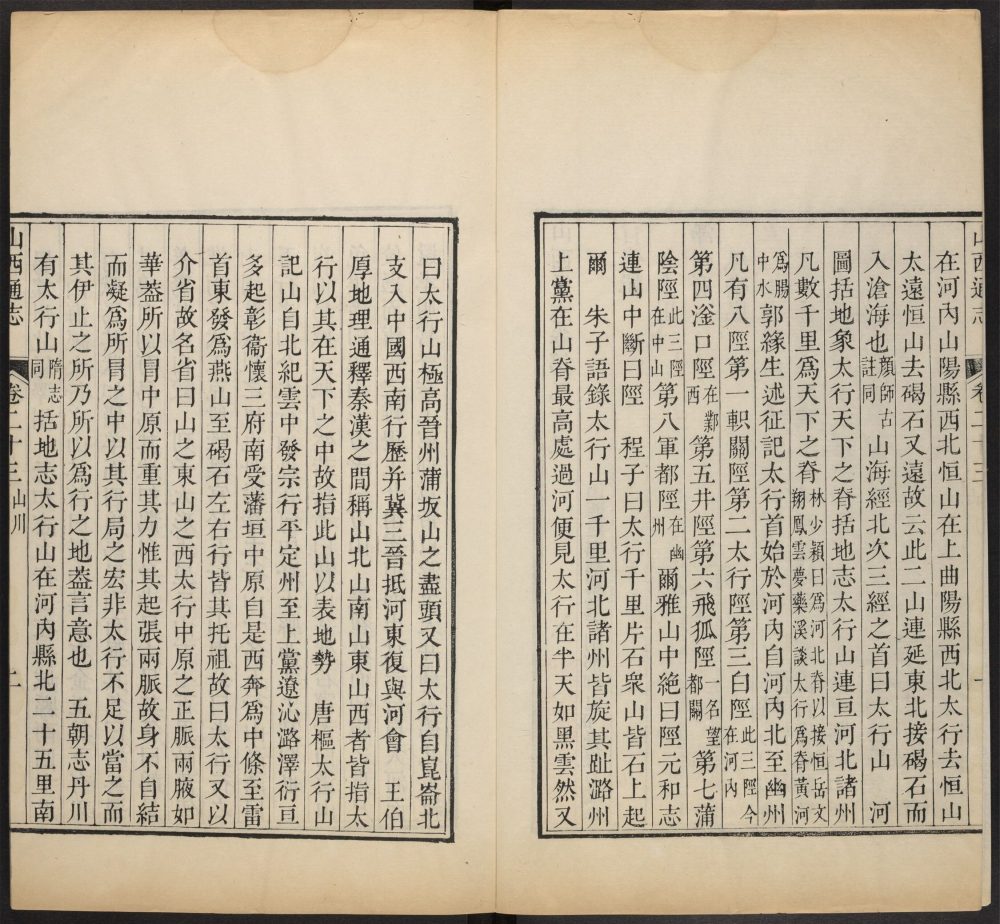 山西通志 卷二十三
在河內山陽縣西北恒山在上曲陽縣西北太行去恒山
太遠恒山去碣石又遠故云此二山連延東北接碣石而
入滄海也顏師古註同 山海經北次三經之首曰太行山 河
圖括地象太行天下之脊括地志太行山連亘河北諸州
凡數千里爲天下之脊林少穎曰爲河北脊以接恒岳文翔鳳雲夢藥溪談太行爲脊黃河
爲腸中水郭緣生述征記太行首始於河內自河內北至幽州
凡有八陘第一軹關陘第二太行陘第三白陘此三陘今在河內
第四滏口陘在鄴西第五井陘第六飛狐陘一名望都關第七蒲
陰陘此三陘在中山第八軍都陘在幽州爾雅山中絕曰陘元和志
連山中斷曰陘 程子曰太行千里片石衆山皆石上起
爾 朱子語錄太行山一千里河北諸州皆旋其趾潞州
上黨在山脊最高處過河便見太行在半天如黑雲然又
曰太行山極高晉州蒲坂山之盡頭又曰太行自崑崙北
支入中國西南行歷并冀三晉抵河東復與河會 王伯
厚地理通釋秦漢之間稱山北山南山東山西者皆指太
行以其在天下之中故指此山以表地勢 唐樞太行山
記山自北紀雲中發宗行平定州至上黨遼沁潞澤衍亘
多起彰衞懷三府南受藩垣中原自是西奔爲中條至雷
首東發爲燕山至碣石左右行皆其托祖故曰太行又以
介省故名省曰山之東山之西太行中原之正脈兩腋如
華葢所以冒中原而重其力惟其起張兩脈故身不自結
而凝爲所冒之中以其行局之宏非太行不足以當之而
其伊止之所乃所以爲行之地葢言意也 五朝志丹川
有太行山隋志同 括地志太行山在河內縣北二十五里南
山西通志 卷二十三 山川 二